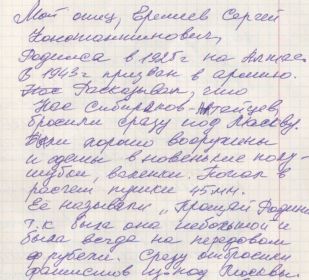 Мой отец, Еремеев Сергей
Константинович,
Родился в 1925г на Алтае.
В 1943г призван в армию.
Рассказывал, что
Нас Сибиряков-Алтайцев
бросили сразу под Москву.
Были хорошо вооружины
и одеты в новенькие полу-
шубки, валенки. Попал в
расчет пушки 45мм.
Ее называли „Прощай Родина
т.к была она небольшой и
была всегда на передовом
рубеже. Сразу отбросили
фашистов из-под Москвы.